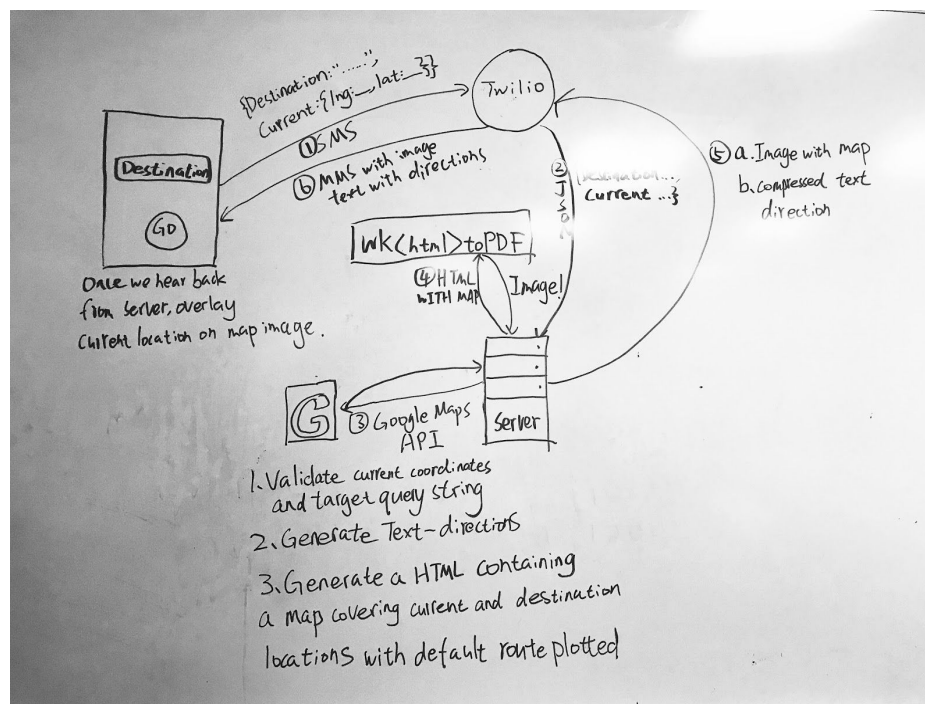 {Destination:".....",
Current:{lng:__,lat:__}}
① SMS
⑥ MMS with image
text with directions
Twilio
Destination
GO
Once we hear back
from server, overlay
current location on map image.
② JSON
{Destination...,
Current ...}
⑤ a. Image with map
b. compressed text
direction
wk<html>toPDF
④ HTML
WITH MAP
Image!
Server
G
③ Google Maps
API
1. Validate current coordinates
and target query string
2. Generate Text-directions
3. Generate a HTML containing
a map covering current and destination
locations with default route plotted